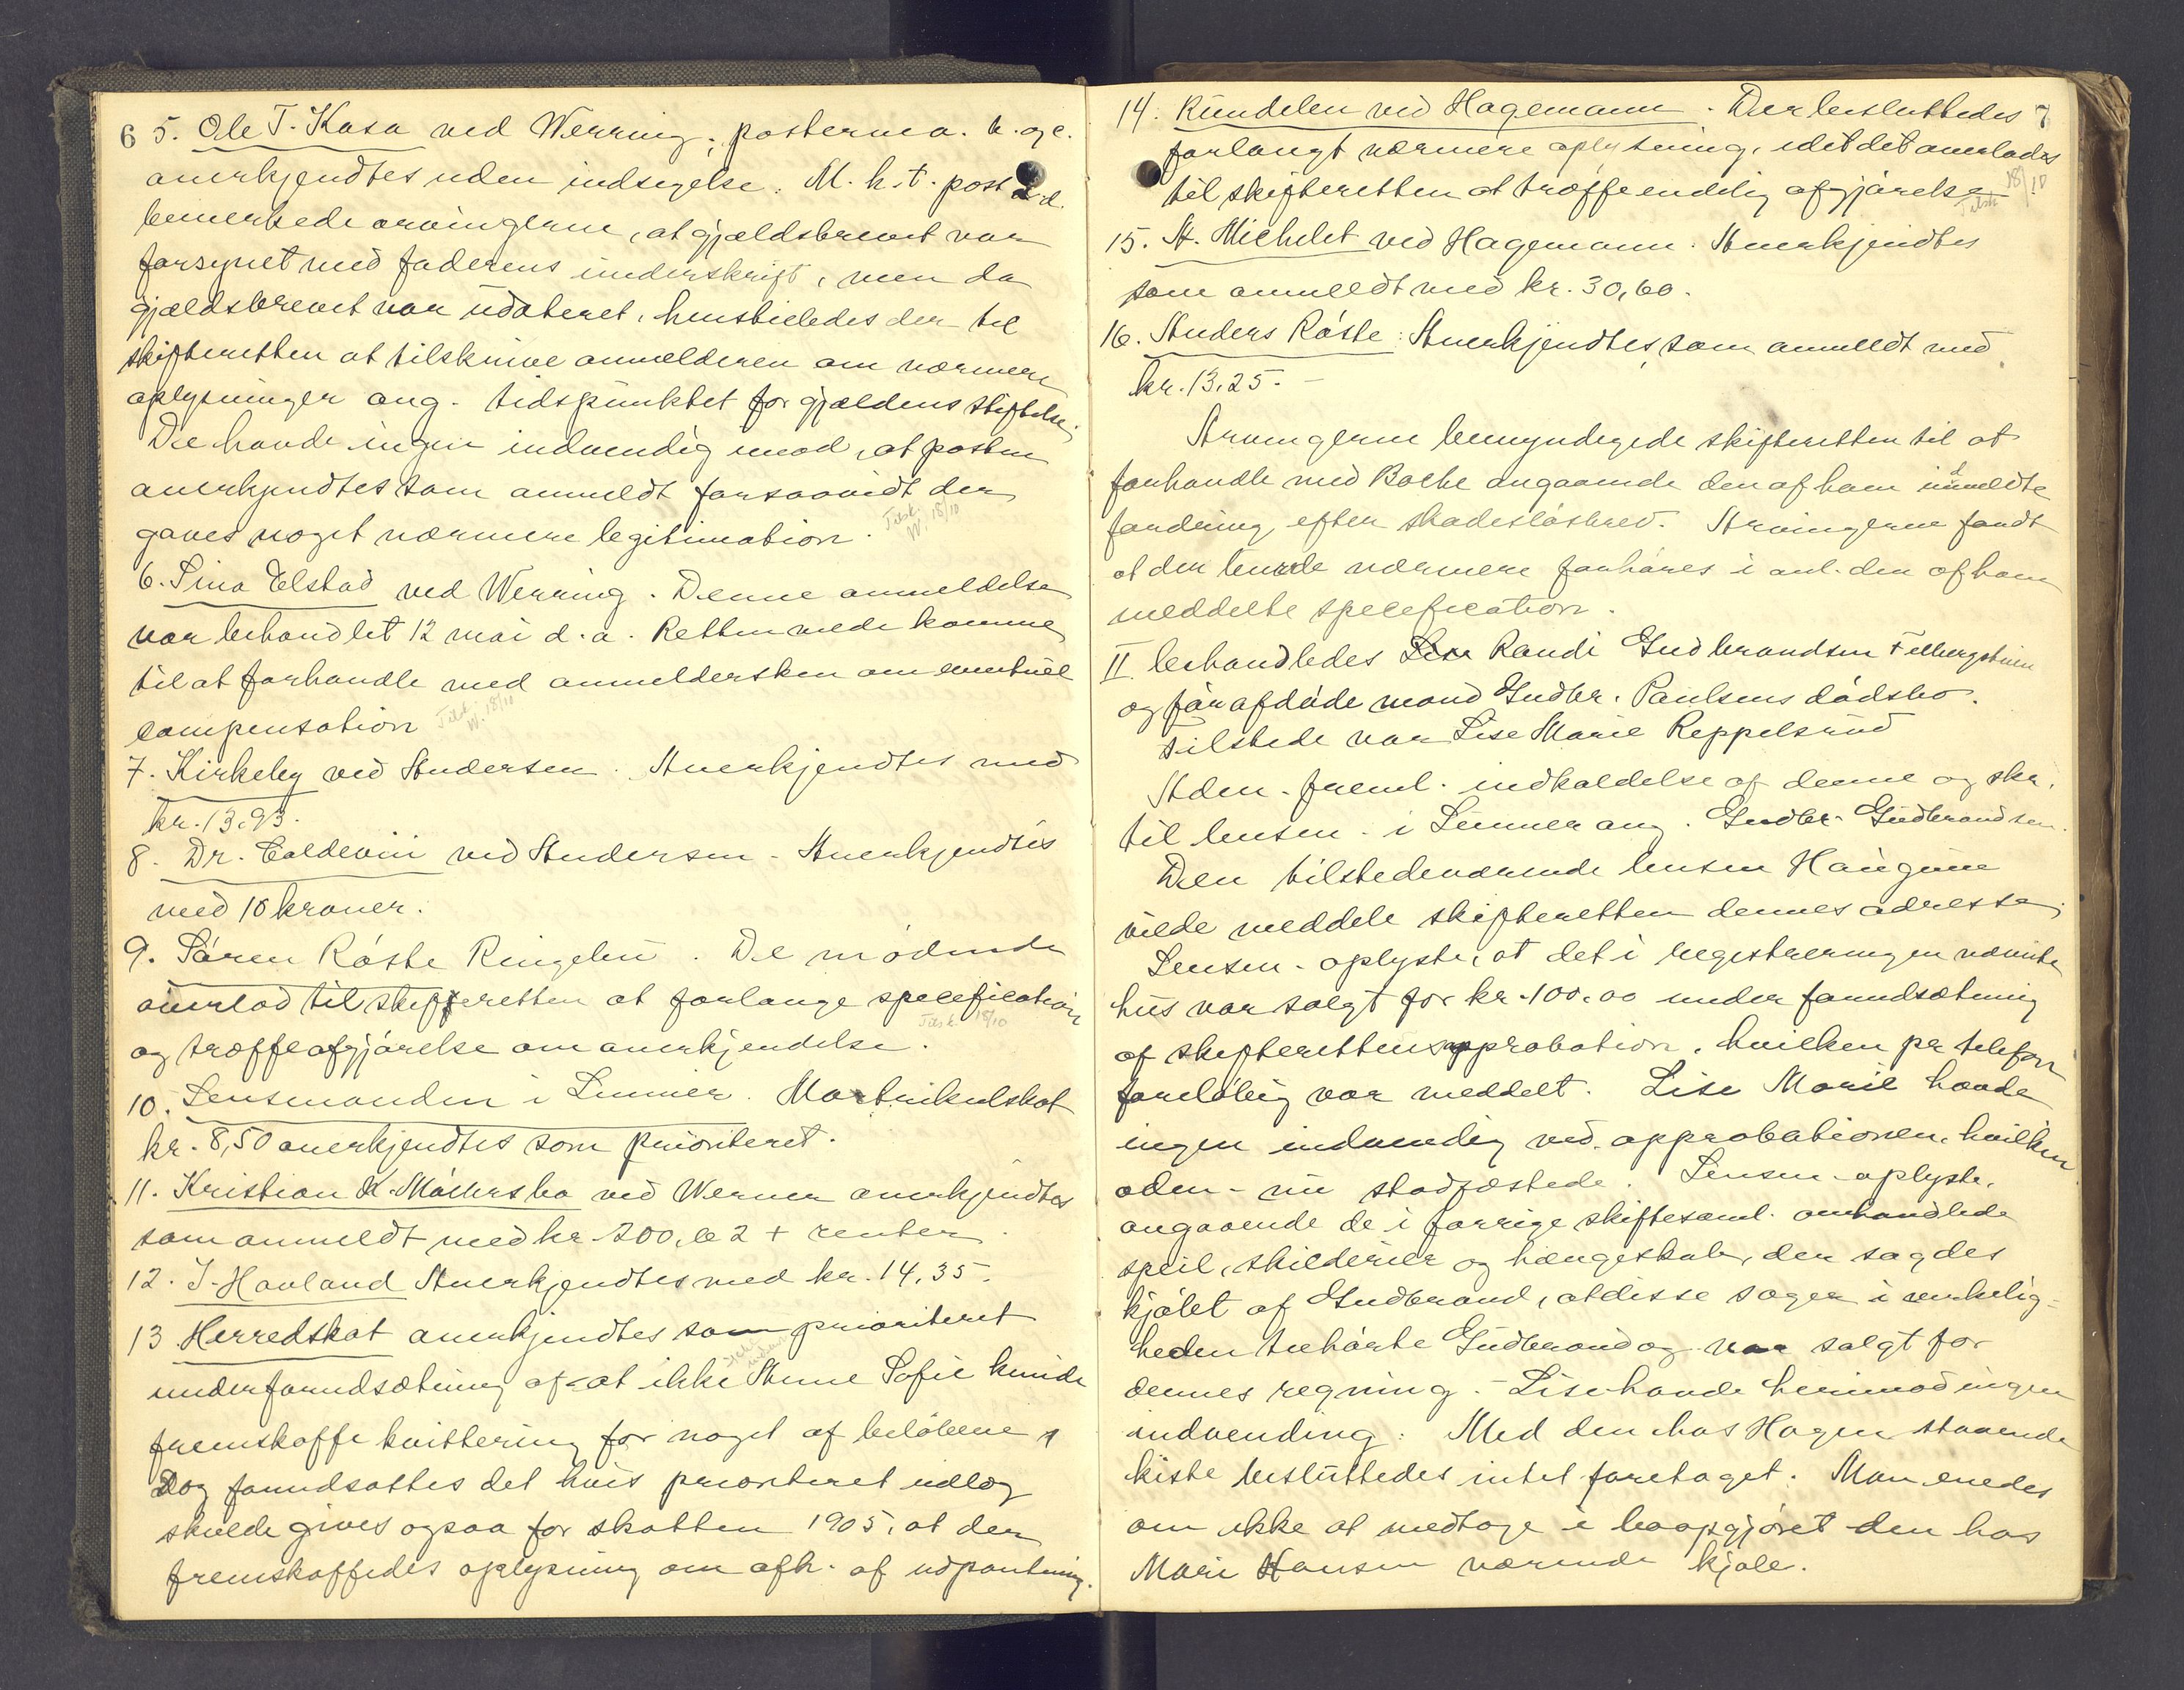 6
5. Ole T. Kasa ved Werring; posterne a. b. og c.
anerkjendtes uden indsigelse. M. h. t. post d.
bemerkede arvingerne, at gjældsbrevet var
forsynet med faderens underskrift, men da
gjældsbrevet var udateret, henstilledes der til
skifteretten at tilskrive anmelderen om nærmere
oplysninger ang. tidspunktet for gjældens stiftelse.
De havde ingen indvendig imod, at posten
anerkjendtes som anmeldt forsaavidt der
gaves noget nærmere legitimation.
Tilsk. W. 18/10
6. Sina Elstad ved Werring. Denne anmeldelse
var behandlet 12 mai d. a. Retten vilde komme
til at forhandle med anmeldersken om eventuel
compensation
Tilsk. W. 18/10
7. Kirkeby ved Andersen. Anerkjendtes med
kr. 13.93.
8. Dr. Coldevin ved Andersen. Anerkjendtes
med 10 kroner.
9. Sören Röste Ringelien. De mödende
overlod til skifteretten at forlange specification
Tilsk. 18/10
og træffe afgjörelse om anerkjendelse.
10. Lensmanden i Lunner. Martrikulskat
kr. 8,50 anerkjendtes som prioriteret.
11. Kristian K. Möllersbo ved Werner anerkjendtes
som anmeldt med kr. 200, + renter.
12. J. Hovland Anerkjendtes med kr. 14,35.
13 Herredskat anerkjendtes som prioriteret
under forudsætning af at ikke Anne Sofie kunde
fremskaffe kvittering for noget af belöbene
Dog forudsattes det hvis prioriteret udlæg
skulde gives ogsaa for skatten 1905, at der
fremskaffedes oplysning om afh. af udpantning.
7
14. Rundelen ved Hagemann. Der besluttedes
forlangt nærmere oplysning, idet det overlodes
til skifteretten at træffe endelig afgjörelse
Tilsk 18/10
15. A. Michelet ved Hagemann. Anerkjendtes
som anmeldt med kr. 30,60.
16. Anders Röste: Anerkjendtes som anmeldt med
kr. 13.25.
Arvingerne bemyndigede skifteretten til at
forhandle med Bache angaaende den af ham anmeldte
fordring efter skadeslösbrev. Arvingerne fandt
at der burde nærmere forhöres i anl. den af ham
meddelte specification.
II. behandledes Randi Gudbrandsen
og för afdöde mand Gudbr. Paulsens dödsbo.
Tilstede var Lise Marie Reppelsrud
Adm. freml. indkaldelse af denne og skr.
til lensm. i Lunner ang. Gudbr. Gudbrandsen.
Den tilstedeværende lensm Haugene
vilde meddele skifteretten dennes adresse.
Lensm. oplyste, at det i registreringen nævnte
hus var solgt for kr. 100.00 under forudsætning
af skifterettens approbation, hvilken pr telefon
foreløbig var meddelt. Lise Marie havde
ingen indvendig ved approbationen, hvilken
adm. nu stadfæstede. Lensm. oplyste,
angaaende de i forrige skiftesaml. omhandlede
speil, skilderier og hængeskab, der sagdes
kjöbt af Gudbrand, at disse sager i virkelig-
heden tilhörte Gudbrand og var solgt for
dennes regning. Lise havde herimod ingen
indvending. Med den hos Hagen staaende
kiste besluttedes intet foretaget. Man enedes
om ikke at medtage i boopgjöret den hos
Mari Hansen værende kjole.